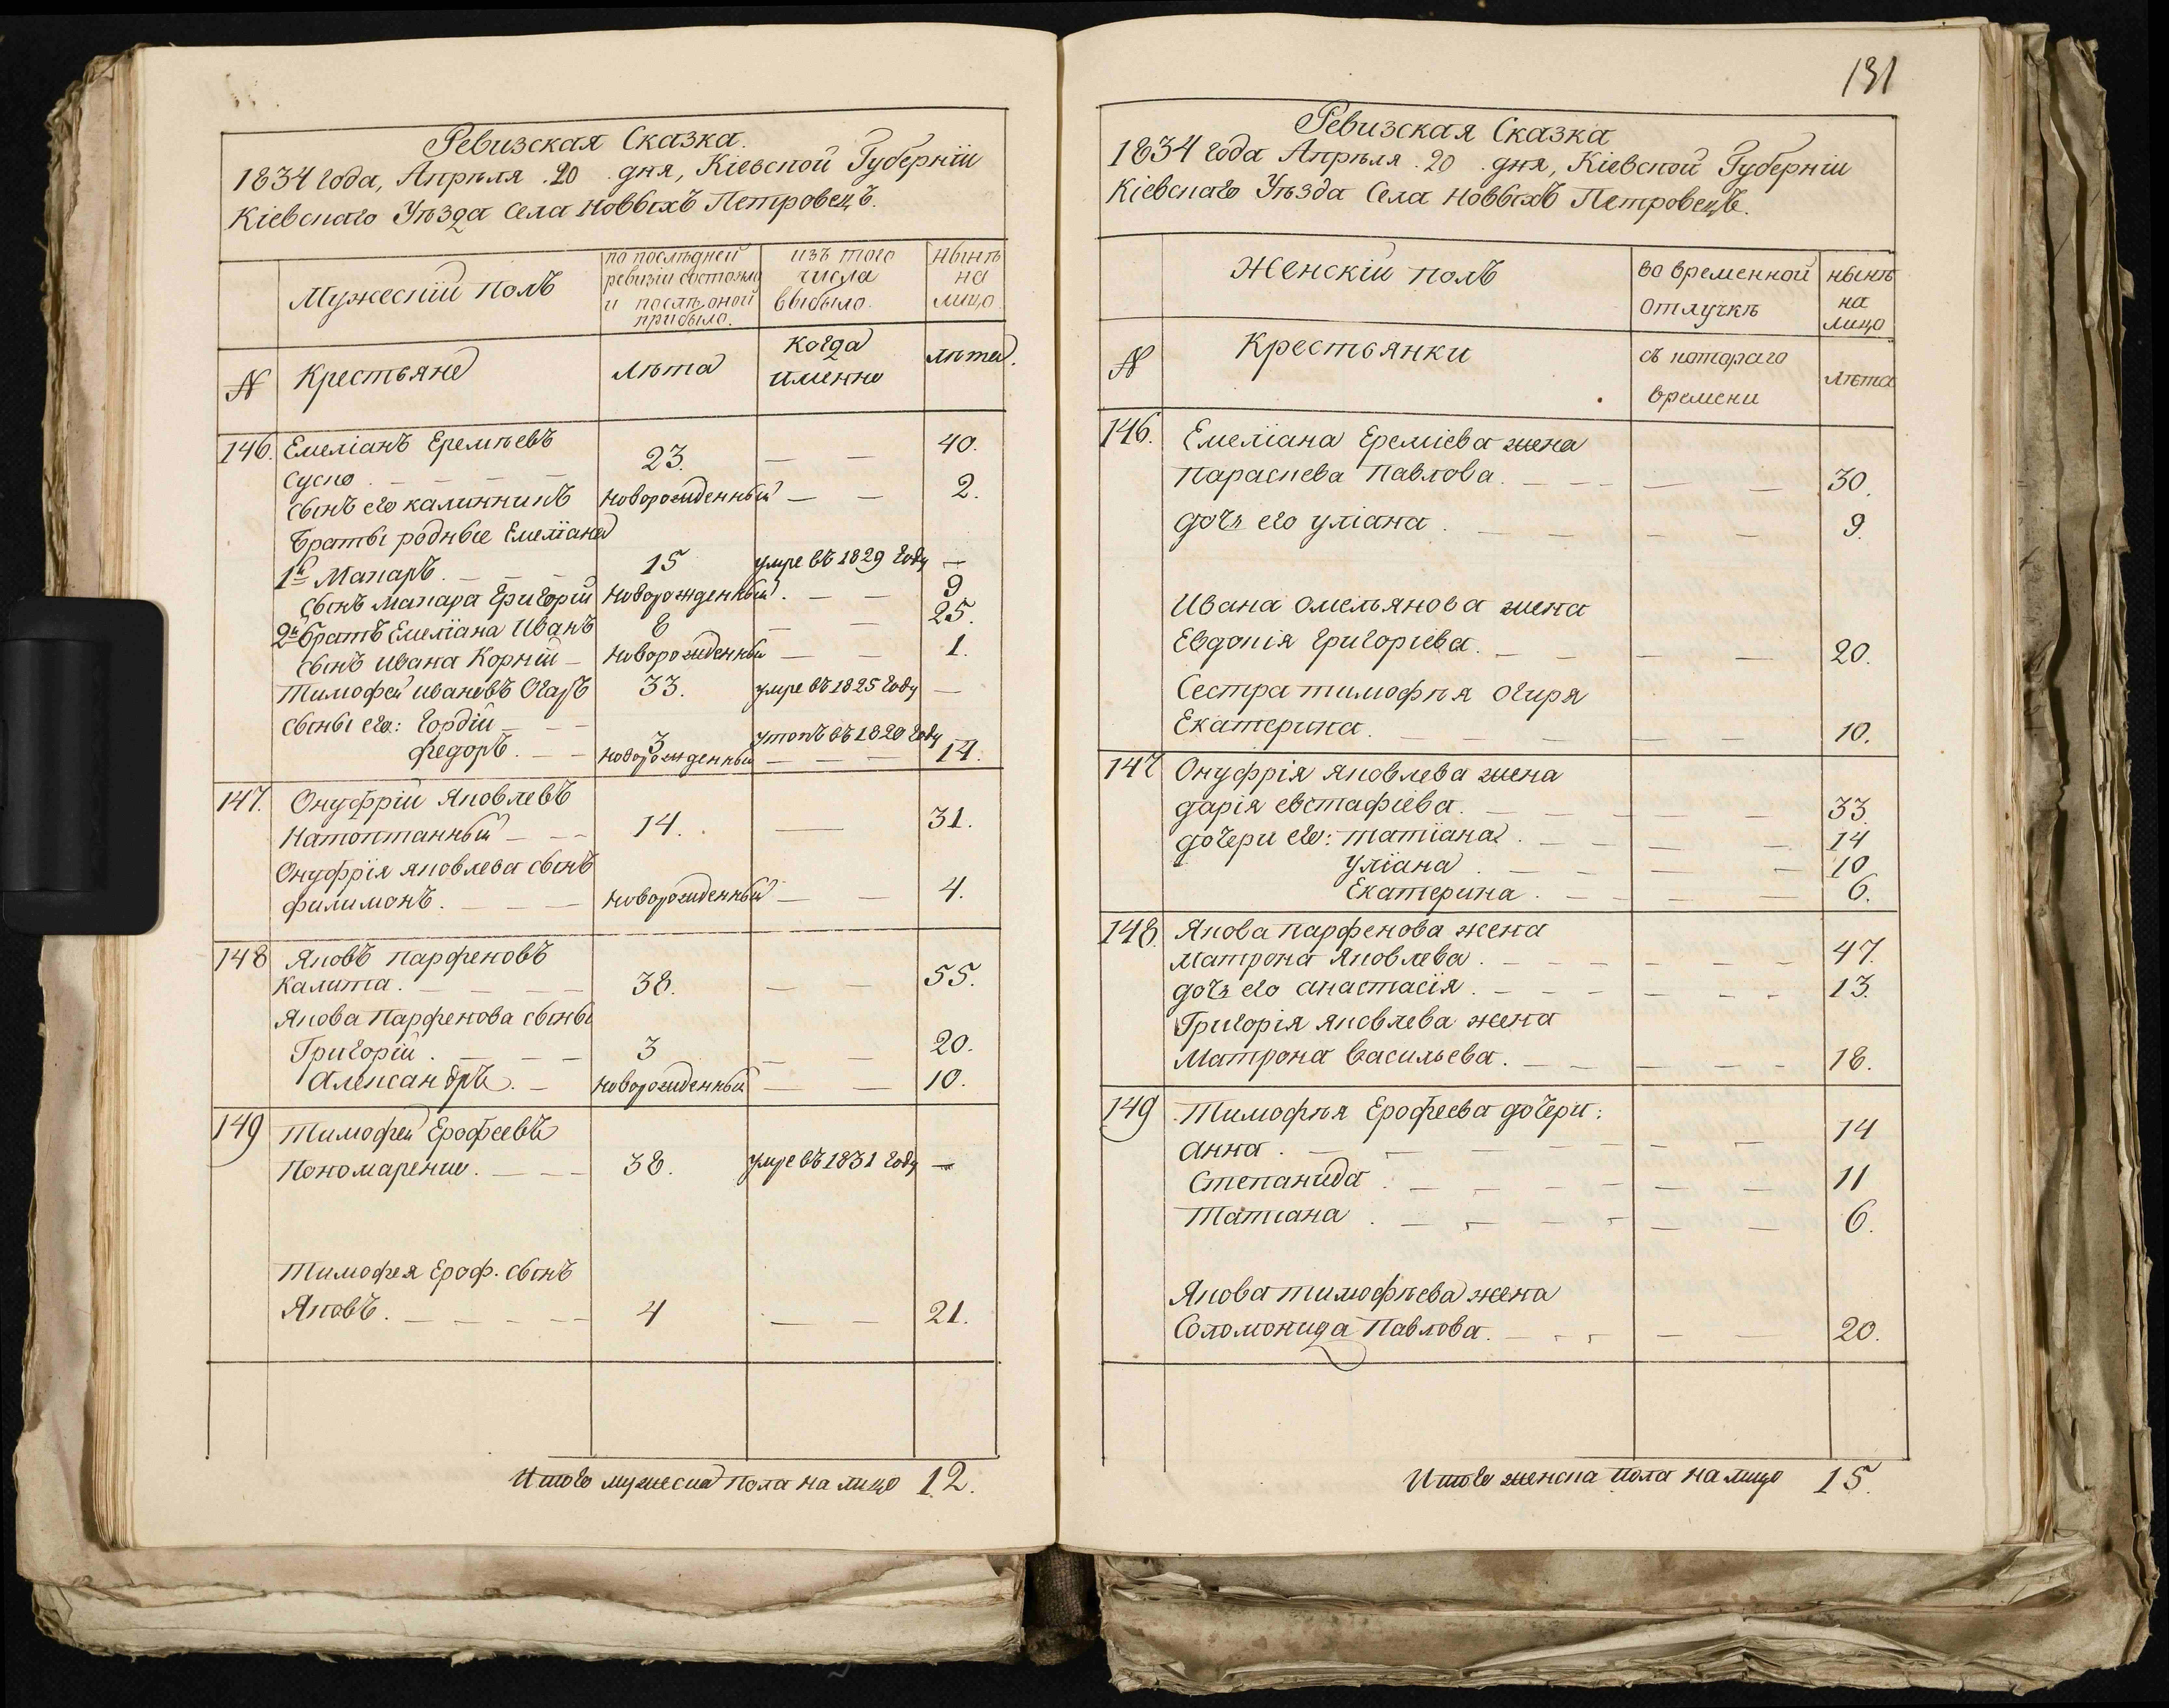 Ревизская Сказка.
1834 года, Апрѣля .20 . дня, Кіевской Губерніи
Кіевскаго Уѣзда Села Новвыхъ Петровецъ.
Мужескій полъ
по послѣдней ревизіи состояло и послѣ оной прибыло.
изъ того числа выбыло.
нынѣ на лицо.
№
Крестьяне
лѣта
когда именно
лѣта.
146. Емеліанъ Еремѣевъ
Суско . — 23. — — 40.
сынъ его калинникъ новорожденный — — 2.
браты родные Емеліана
1й Макаръ. — 15 умре въ 1829 году —
сынъ макара Григорій новорожденный. — — 9
2й братъ Емеліана Иванъ 8 — — 25.
сынъ ивана Корній — новорожденный — — 1.
Тимофей ивановъ Огаръ 33. умре въ 1825 году —
сыны его: Гордій — 3 утопъ въ 1820 году
федоръ. — новорожденный — — — 14.
147. Онуфрій Яковлевъ
Натоптанный — 14. — 31.
Онуфрія яковлева сынъ
филимонъ. — новорожденный — — 4.
148 Яковъ парфеновъ
Калита. — 38. — — 55.
Якова Парфенова сыны
Григорій . — 3 — — 20.
Александръ. — новорожденный — — 10.
149 Тимофей Ерофеевъ
Пономаренко. — 38. умре въ 1831 году —
Тимофея Ероф. сынъ
Яковъ. — 4 — — 21.
Итого мужеска пола на лицо 12.
131
Ревизская Сказка
1834 года Апрѣля .20 . дня, Кіевской Губерніи
Кіевскаго Уѣзда Села Новвыхъ Петровецъ.
Женскій полъ
во временной отлучкѣ
нынѣ на лицо
№
Крестьянки
съ котораго времени
лѣта
146. Емеліана Ереміева жена
Параскева Павлова. — — — 30.
дочь его уліана . — — — 9.
Ивана омельянова жена
Евдокія Григоріева. — — — 20.
Сестра тимофѣя огиря
Екатерина. — — — 10.
147 Онуфрія яковлева жена
дарія евстафіева. — — — 33.
дочери его: татіана . — — — 14
уліана . — — — 10
Екатерина . — — — 6.
148. Якова парфенова жена
матрона Яковлева . — — — 47.
дочь его анастасія . — — — 13.
Григорія яковлева жена
Матрона васильева. — — — 18.
149 Тимофѣя Ерофеева дочери:
анна . — — — 14
Степанида . — — — 11
Татіана . — — — 6.
Якова тимофѣева жена
Соломонида Павлова. — — — 20.
Итого женска пола на лицо 15.